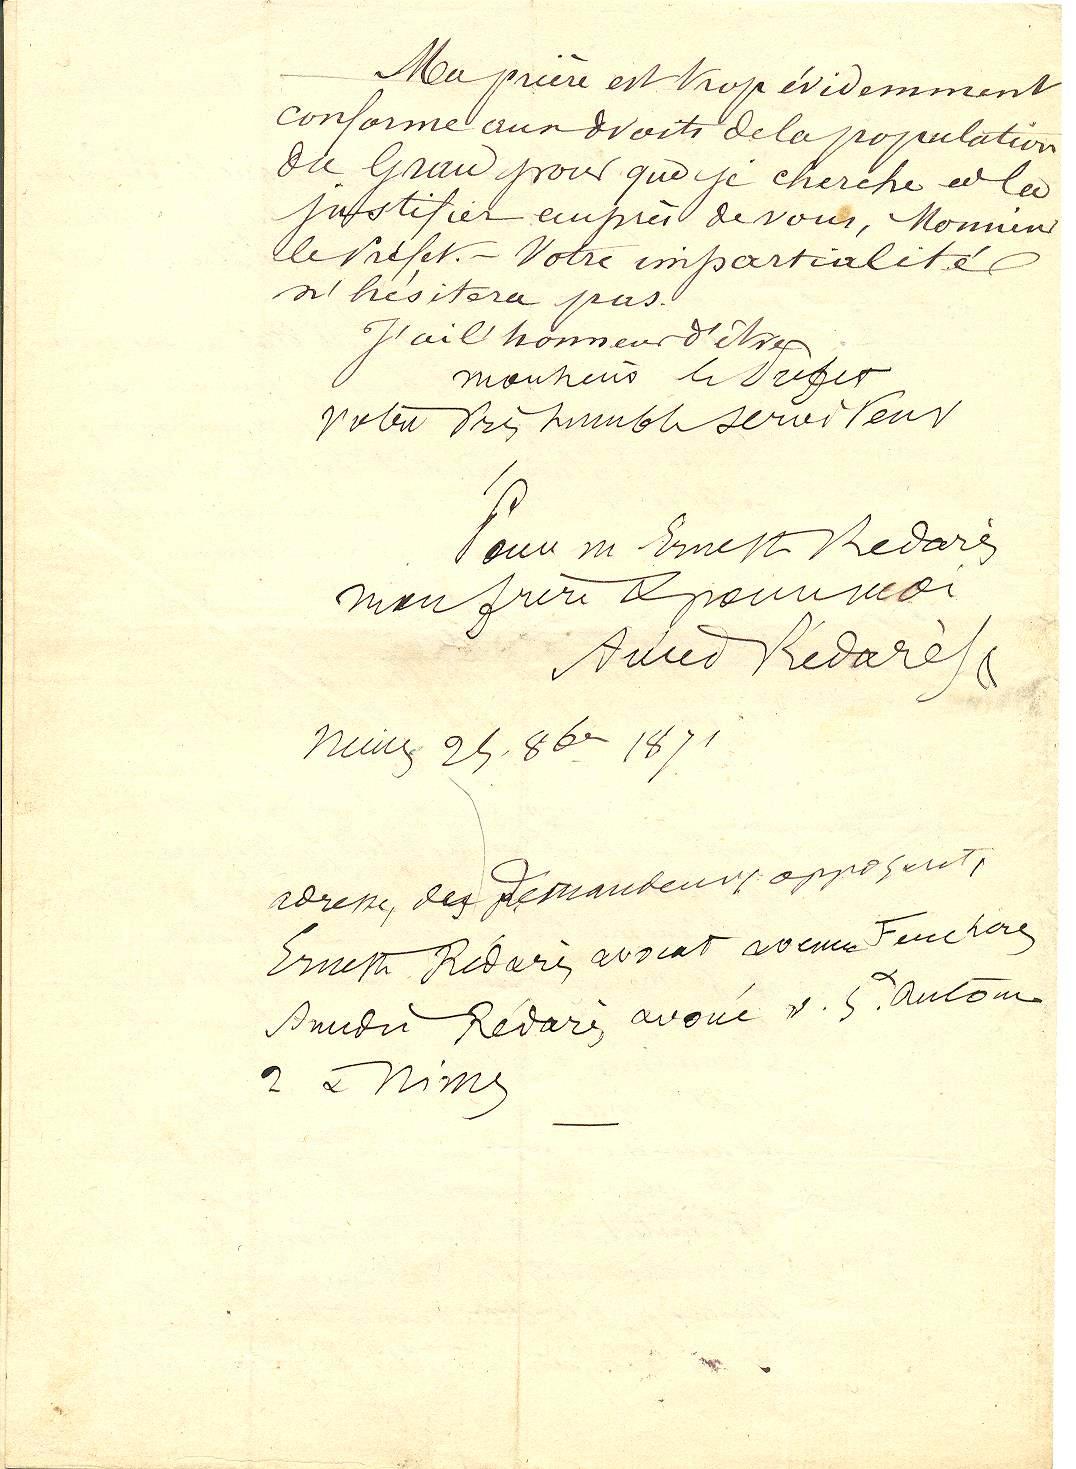 Ma prière est trop évidemment
conforme aux droits de la population
du Grau pour que je cherche à la
justifier auprès de vous, Monsieur
le Préfet. – Votre impartialité
n'hésitera pas.
J'ai l'honneur d'être
monsieur le Préfet
votre très humble serviteur
Pour m Ernest Rédarès
mon frère & pour moi
Amed Rédarès
Nimes 25. 8bre 1871
adresse, des demandeurs opposants,
Ernest Rédarès avocat avenue Feuchères
Amédée Rédarès avoué r. St. Antoine
2 à Nimes